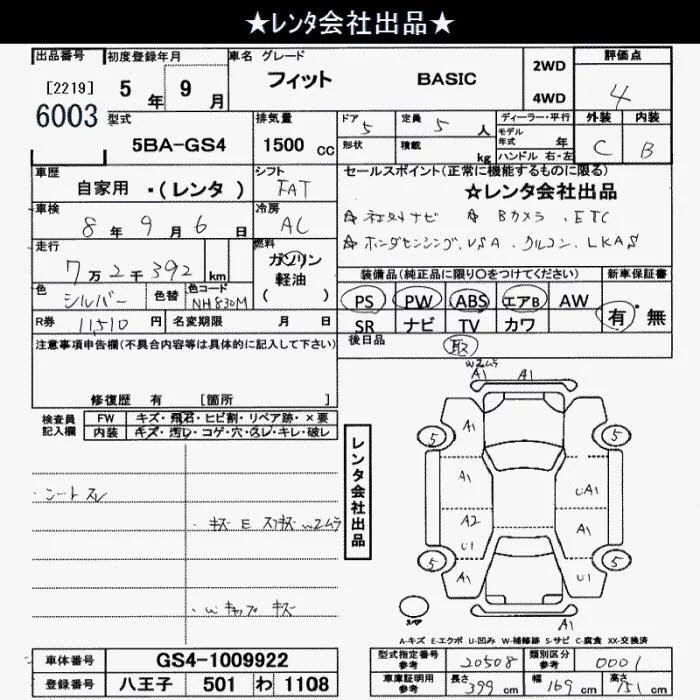 ★レンタ会社出品★
出品番号 初度登録年月 車名 グレード 2WD 評価点
[2219] 5年 9月 フィット BASIC 4WD 4
6003
型式 排気量 ドア 定員 ディーラー・平行 外装 内装
5BA-GS4 1500cc 5 5人 モデル年式 年 C B
形状 積載 kg ハンドル 右・左
車歴 シフト セールスポイント(正常に機能するものに限る)
自家用 ・(レンタ ) FAT ★レンタ会社出品
車検 冷房 ☆社外ナビ ☆Bカメラ . ETC
8年 9月 6日 AC ☆ホンダセンシング. VSA . クルコン . LKAS
走行 燃料
7万2千392km ガソリン 軽油 ( )
装備品(純正品に限り○をつけてください) 新車保証書
色 色替 色コード PS PW ABS エアB AW 有・無
シルバー NH830M SR ナビ TV カワ
R券 11,510円 名変期限 月 日 後日品 取
注意事項申告欄(不具合内容等は具体的に記入して下さい)
修復歴 有 [箇所 ]
検査員記入欄 FW キズ・飛石・ヒビ割・リペア跡・×要
内装 キズ・汚レ・コゲ・穴・スレ・キレ・破レ
W2ムラ
A1 A1
5 A1 5
A1 UA1
A2 A1
U1
5 A1 U1 5
A1
レンタ会社出品
・シートスレ
・キズ E スリキズ W2ムラ
・Wキャップ キズ
A-キズ E-エクボ U-凹み W-補修跡 S-サビ C-腐食 XX-交換済
車体番号 GS4-1009922
登録番号 八王子 501 わ 1108
型式指定番号 参考 20508 類別区分 参考 0001
車庫証明用 参考 長さ 399cm 幅 169cm 高さ 151cm